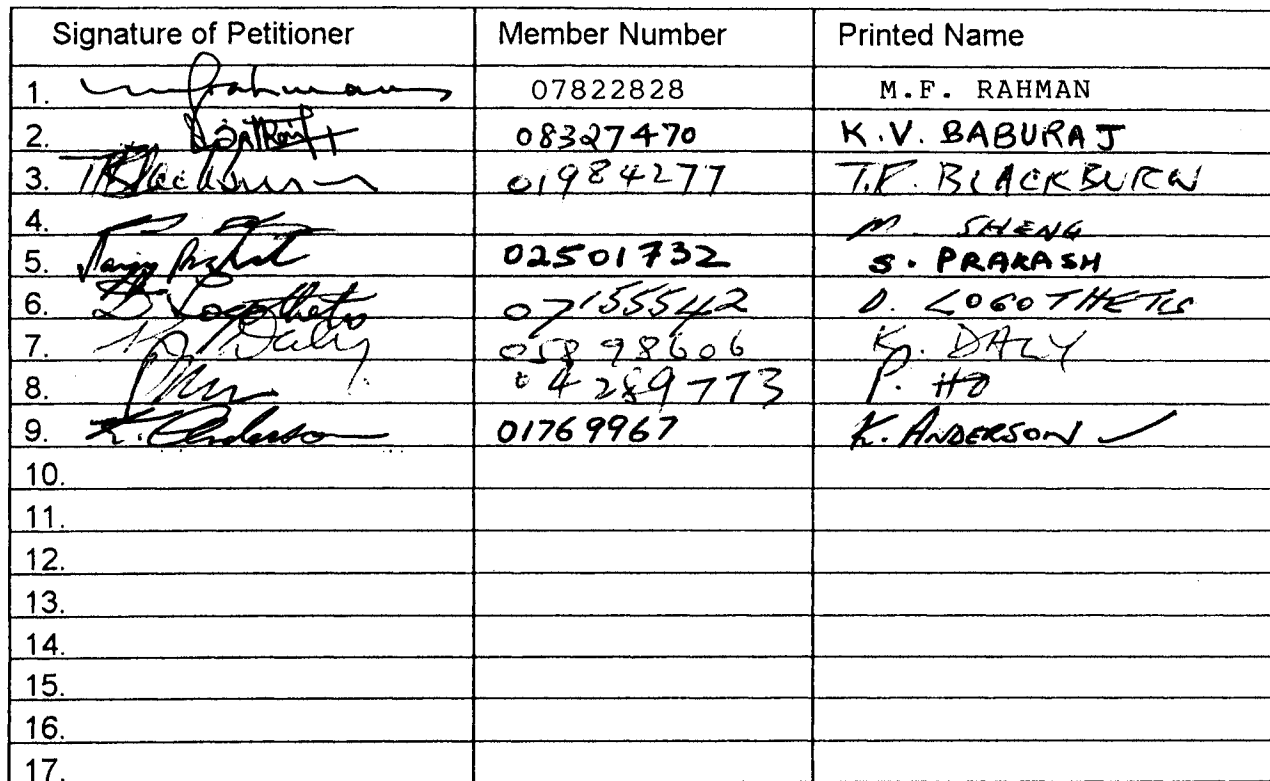 Signature of Petitioner Member Number Printed Name
1. 07822828 M.F. RAHMAN
2. 08327470 K.V. BABURAJ
3. T Blackburn 01984277 T.F. BLACKBURN
4. M. SHENG
5. 02501732 S. PRAKASH
6. D Logothetis 07155542 D. LOGOTHETIS
7. K Daly 05898606 K. DALY
8. 04289773 P. HO
9. K. Anderson 01769967 K. ANDERSON ✓
10.
11.
12.
13.
14.
15.
16.
17.